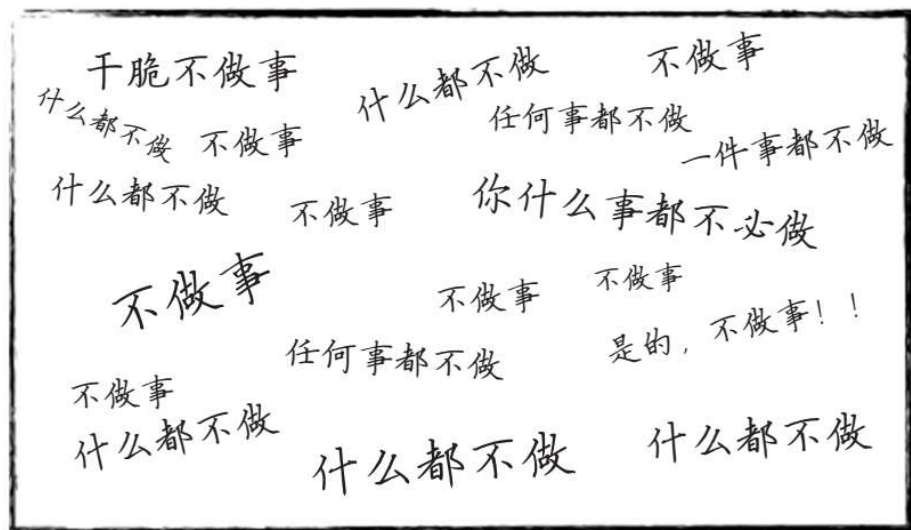 干脆不做事
什么都不做
不做事
什么都不做
不做事
任何事都不做
一件事都不做
什么都不做
不做事
你什么事都不必做
不做事
不做事
不做事
任何事都不做
是的，不做事！！
不做事
什么都不做
什么都不做
什么都不做